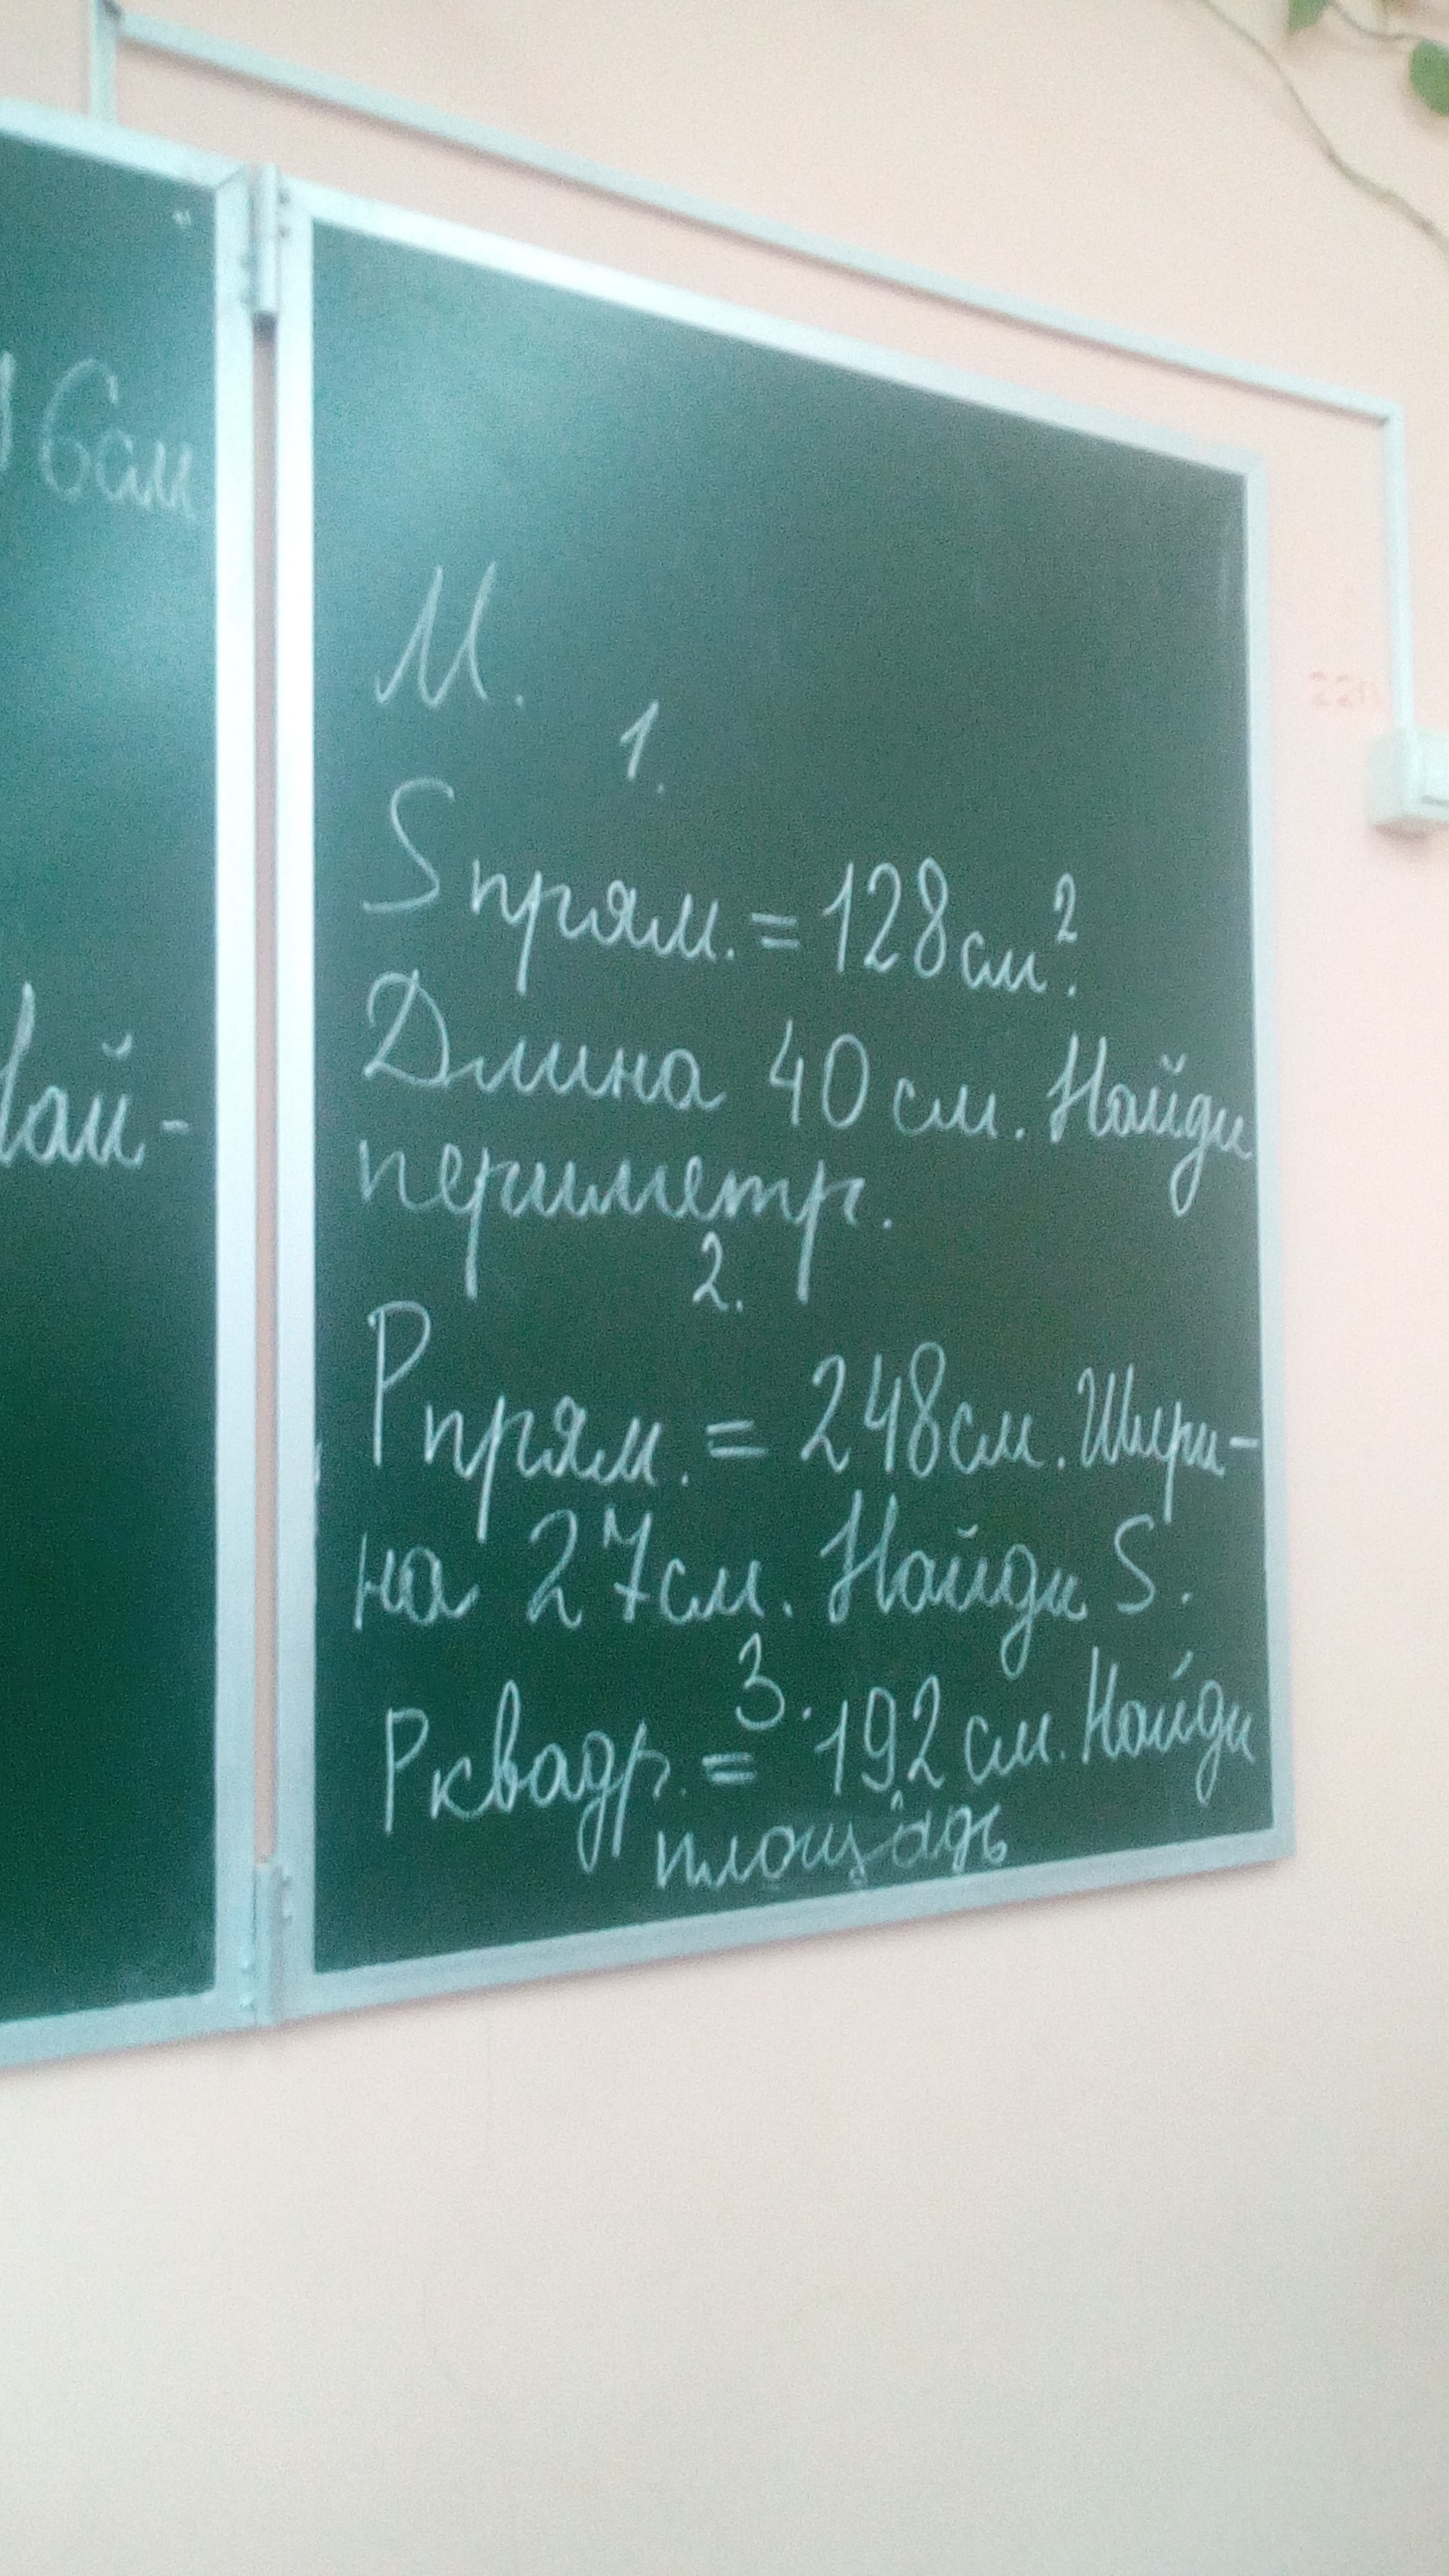 6см
М.
1.
Sпрям. = 128см².
Длина 40 см. Найди
периметр.
2.
Pпрям. = 248см. Шири-
на 27см. Найди S.
3.
Pквадр. = 192 см. Найди
площадь